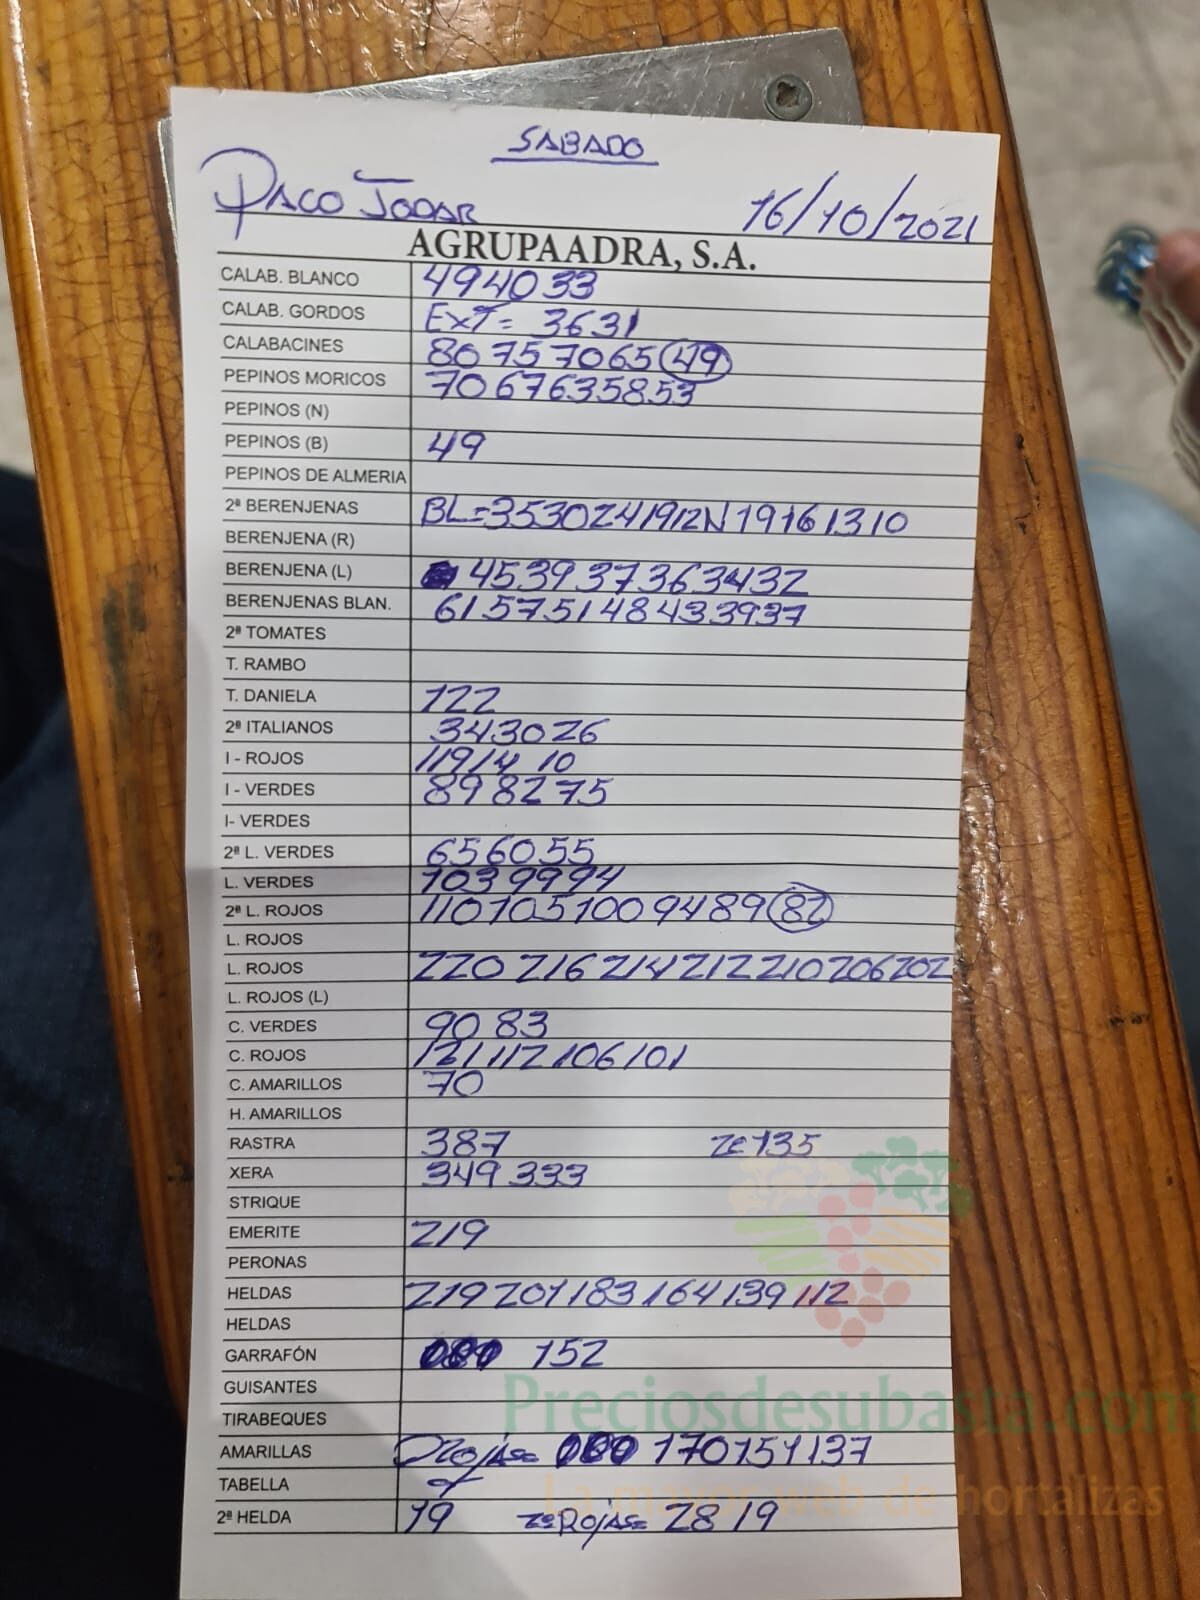 SABADO
PACO JODAR 16/10/2021
AGRUPAADRA, S.A.
CALAB. BLANCO 494033
CALAB. GORDOS EXT= 3631
CALABACINES 80757065 49
PEPINOS MORICOS 7067635853
PEPINOS (N)
PEPINOS (B) 49
PEPINOS DE ALMERIA
2ª BERENJENAS BL=3530241912N19161310
BERENJENA (R)
BERENJENA (L) 453937363432
BERENJENAS BLAN. 61575148433937
2ª TOMATES
T. RAMBO
T. DANIELA 122
2ª ITALIANOS 343026
I - ROJOS 11914 10
I - VERDES 898275
I- VERDES
2ª L. VERDES 656055
L. VERDES 1039994
2ª L. ROJOS 1101051009489 82
L. ROJOS
L. ROJOS 220 216 214 212 210 206 202
L. ROJOS (L)
C. VERDES 90 83
C. ROJOS 121 112 106 101
C. AMARILLOS 70
H. AMARILLOS
RASTRA 387 2ª 135
XERA 349 333
STRIQUE
EMERITE 219
PERONAS
HELDAS 219 201 183 164 139 112
HELDAS
GARRAFÓN 152
GUISANTES
TIRABEQUES
Preciosdesubasta.com
AMARILLAS ROJAS= 170 151 137
TABELLA
La mayor web de hortalizas
2ª HELDA 19 2ª ROJAS= 28 19